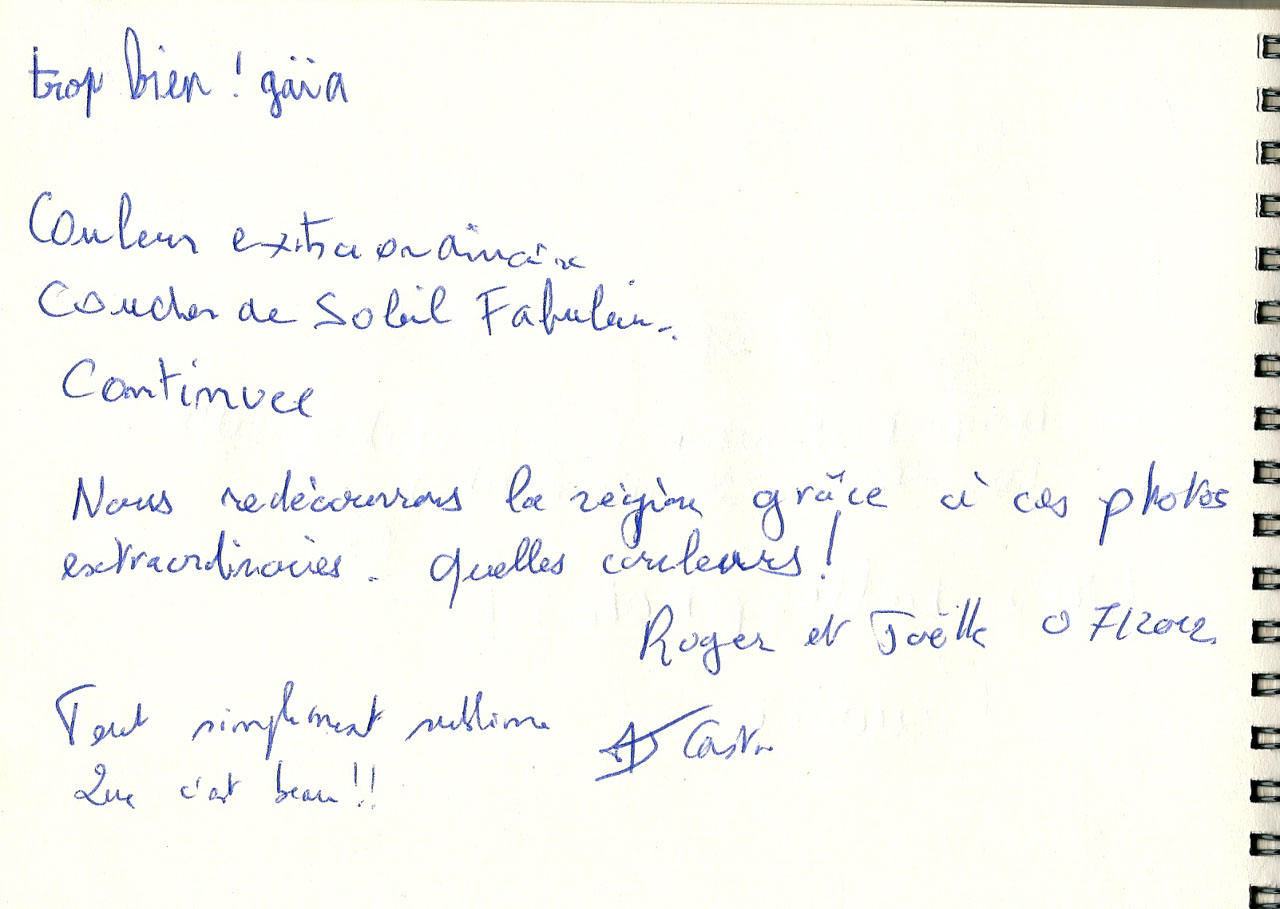 trop bien ! gaïa
Couleur extraordinaire
Coucher de Soleil Fabuleux..
Continuez
Nous redécouvrons la région grâce à ces photos
extraordinaires. Quelles couleurs !
Roger et Joëlle 07/2012
Tout simplement sublime
Que c'est beau !!